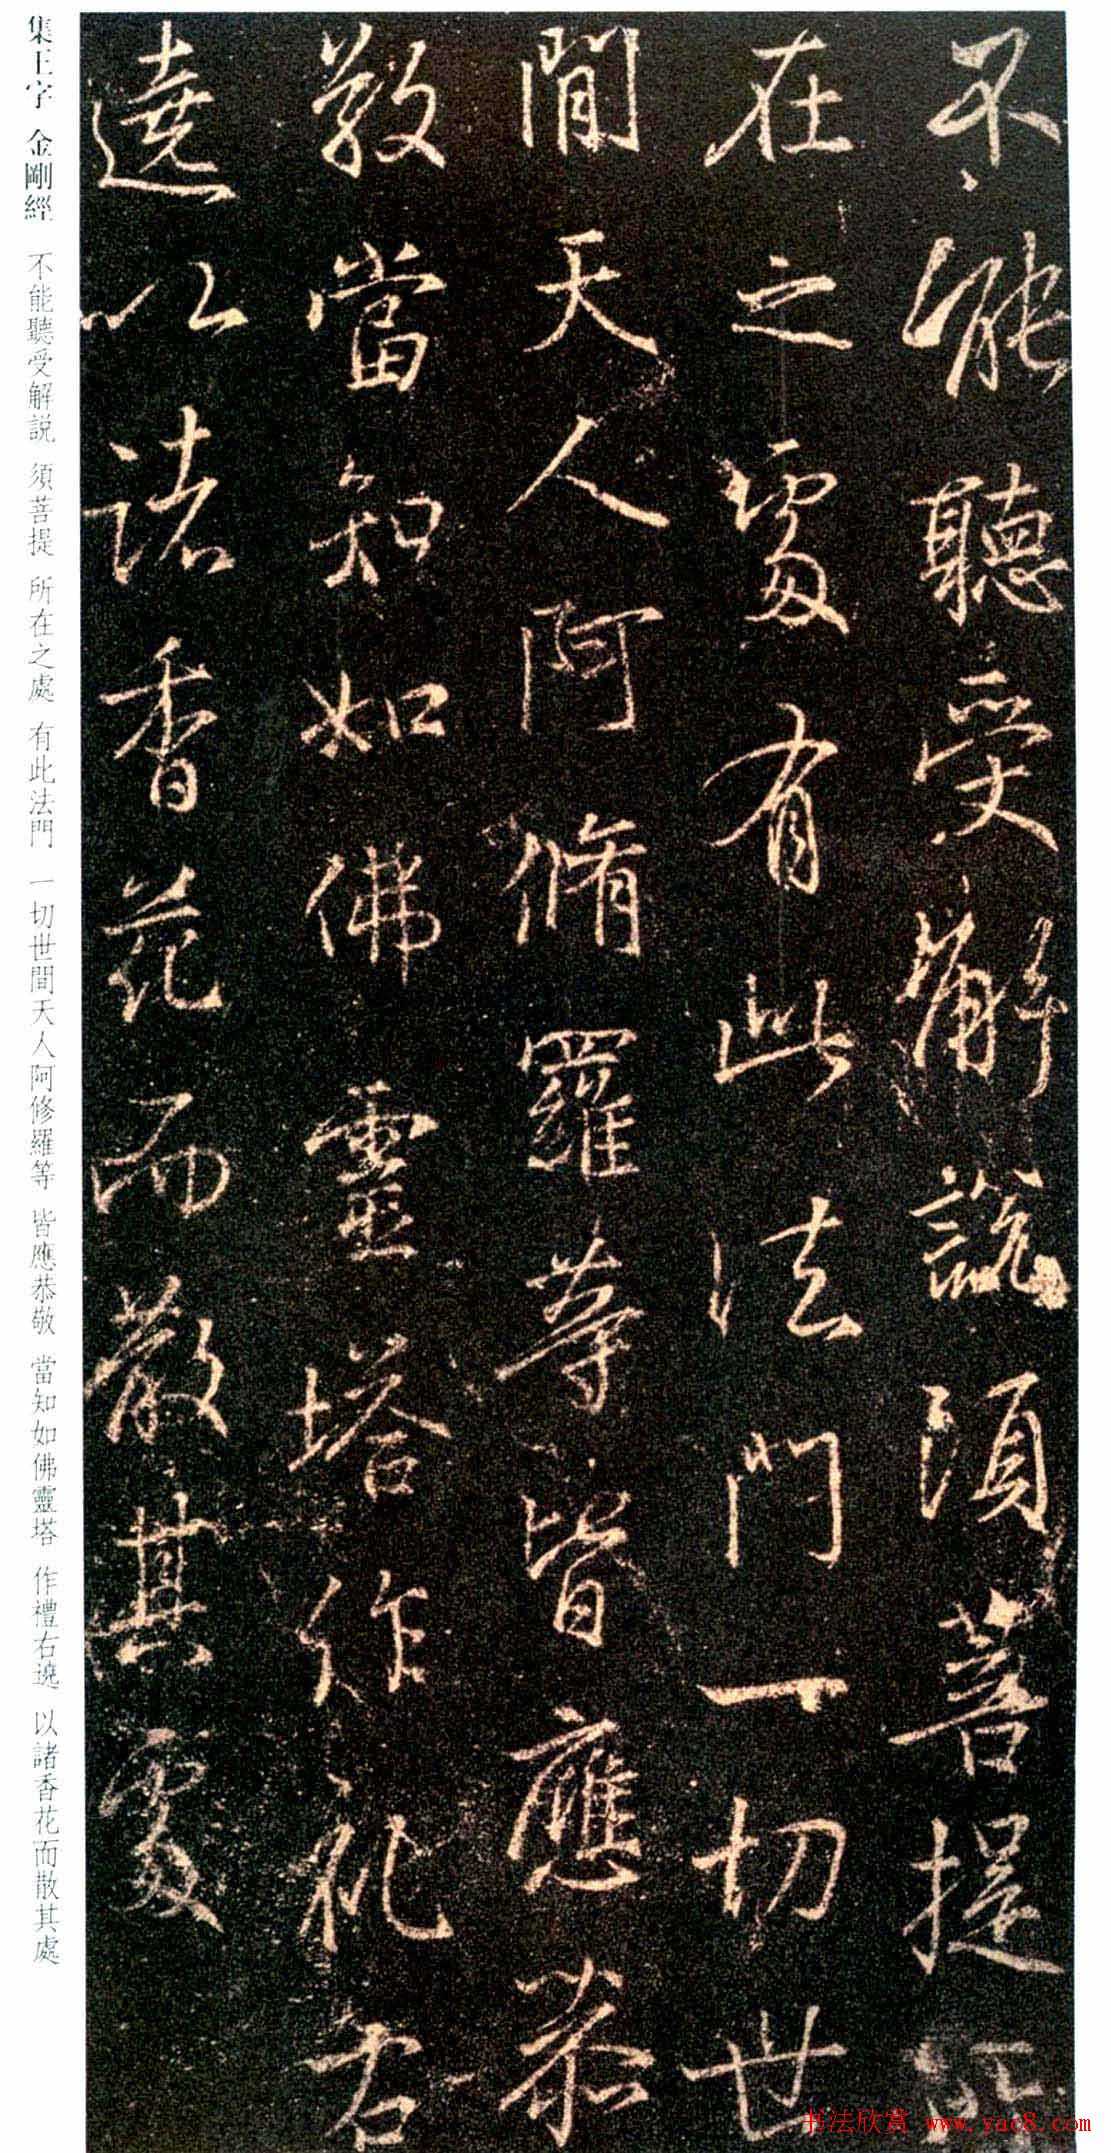 不能聽受解説須菩提所
在之處有此法門一切世
間天人阿脩羅等皆應恭
敬當知如佛靈塔作礼右
遶以諸香花而散其處
集王字 金剛經 不能聽受解説 須菩提 所在之處 有此法門 一切世間天人阿修羅等 皆應恭敬 當知如佛靈塔 作禮右遶 以諸香花而散其處
书法欣赏 www.yac8.com